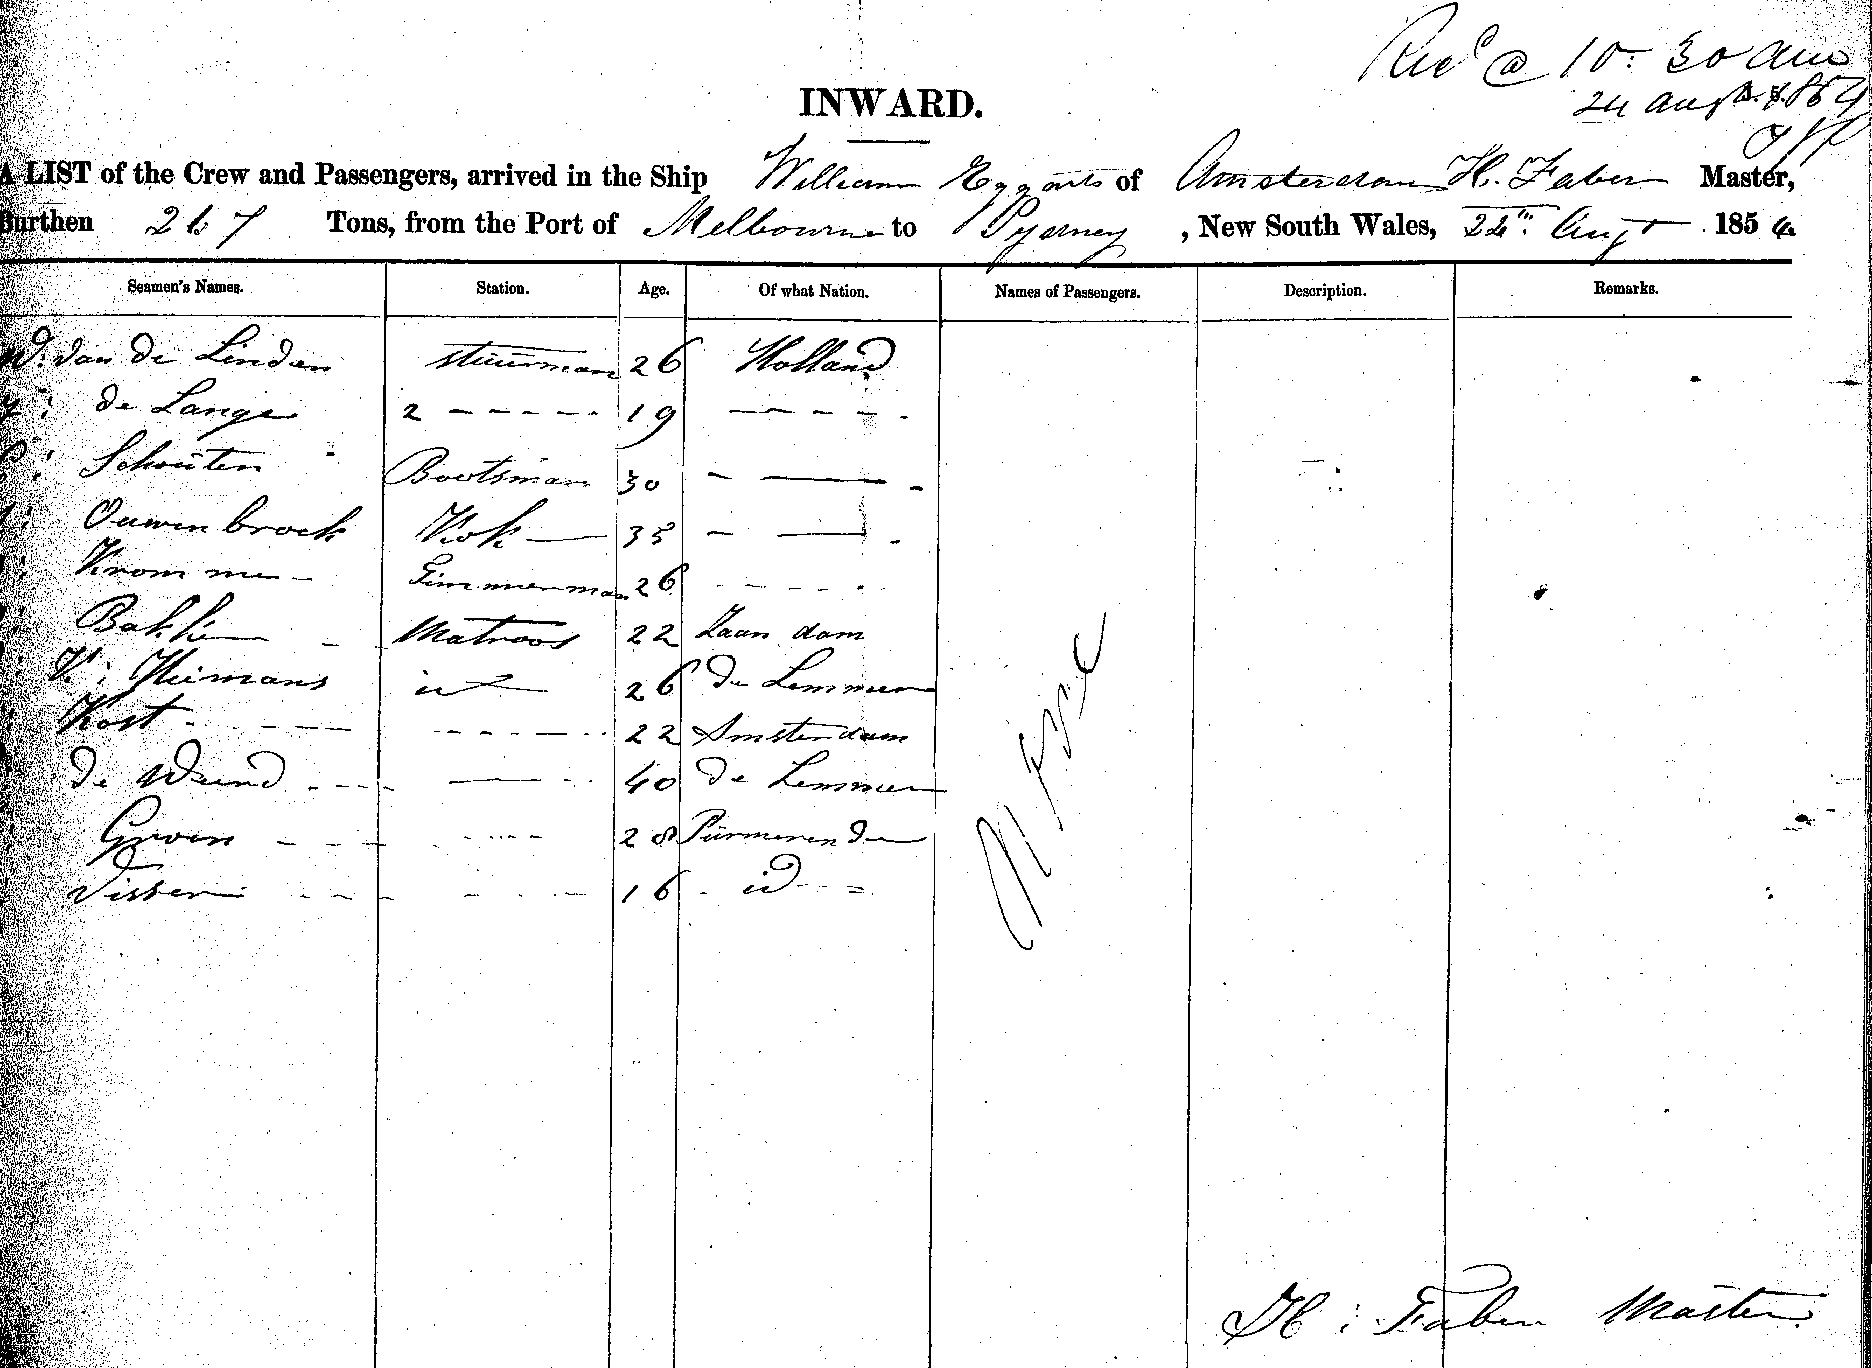 Recd @ 10.30 am
24 Augt 1854
INWARD.
A LIST of the Crew and Passengers, arrived in the Ship William Eggarts of Amsterdam H. Faber Master,
Burthen 267 Tons, from the Port of Melbourne to Sydney, New South Wales, 24th Augt 1854
Seamen's Names. Station. Age. Of what Nation. Names of Passengers. Description. Remarks.
W. van de Linden stuurman 26 Holland
de Lange 2 - - - - - 19 - - - - -
Schouten Bootsman 30 - —— -
Ouwenbroek Kok — 35 - —— -
Kromme - Timmerman 26 - - - - -
Bakker - Matroos 22 Zaandam
K: Heimans id 26 de Lemmer
Kost - - - - - - - - 22 Amsterdam
de Weerd - - - —— - 40 de Lemmer
Groen - - - - - - - 28 Purmerende
Visser - - - - - - - 16 - id - -
None
H: Faber Master